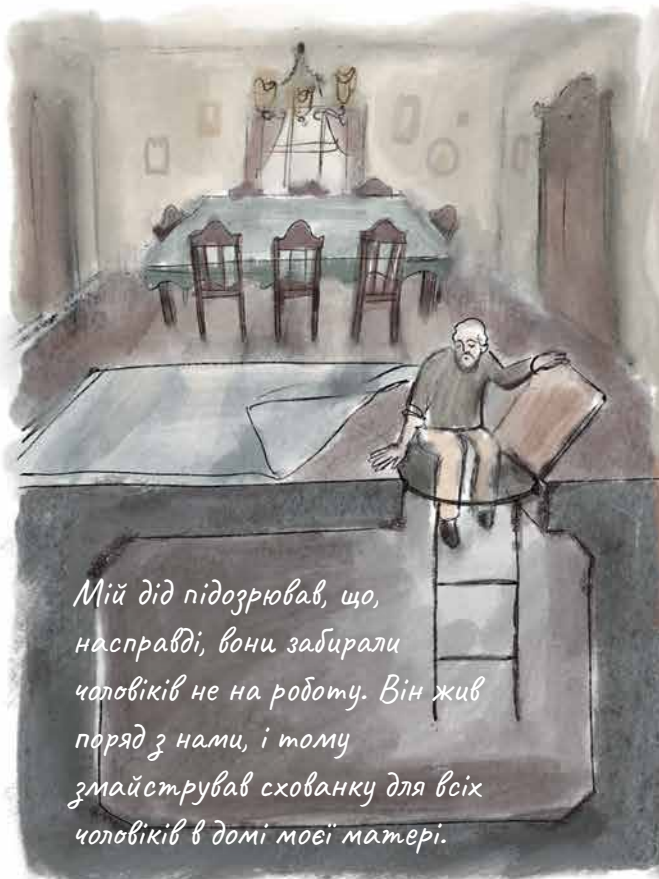 Мій дід підозрював, що,
насправді, вони забирали
чоловіків не на роботу. Він жив
поряд з нами, і тому
змайстрував схованку для всіх
чоловіків в домі моєї матері.